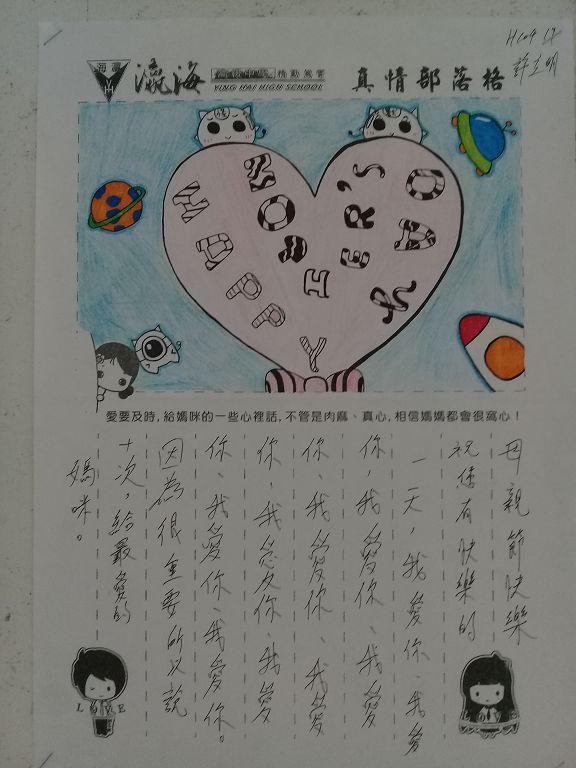 H104 
許立明
海瀛
瀛海
YING HAI HIGH SCHOOL
真情部落格
HAPPY
MOM
HER'S
DAY
愛要及時,給媽咪的一些心裡話,不管是肉麻、真心,相信媽媽都會很窩心!
母親節快樂
祝您有快樂的
一天,我愛你、我愛
你,我愛你、我愛
你、我愛你、我愛
你,我愛你、我愛
你、我愛你、我愛你。
因為很重要所以說
十次,給最愛的
媽咪。
LOVE
LOVE